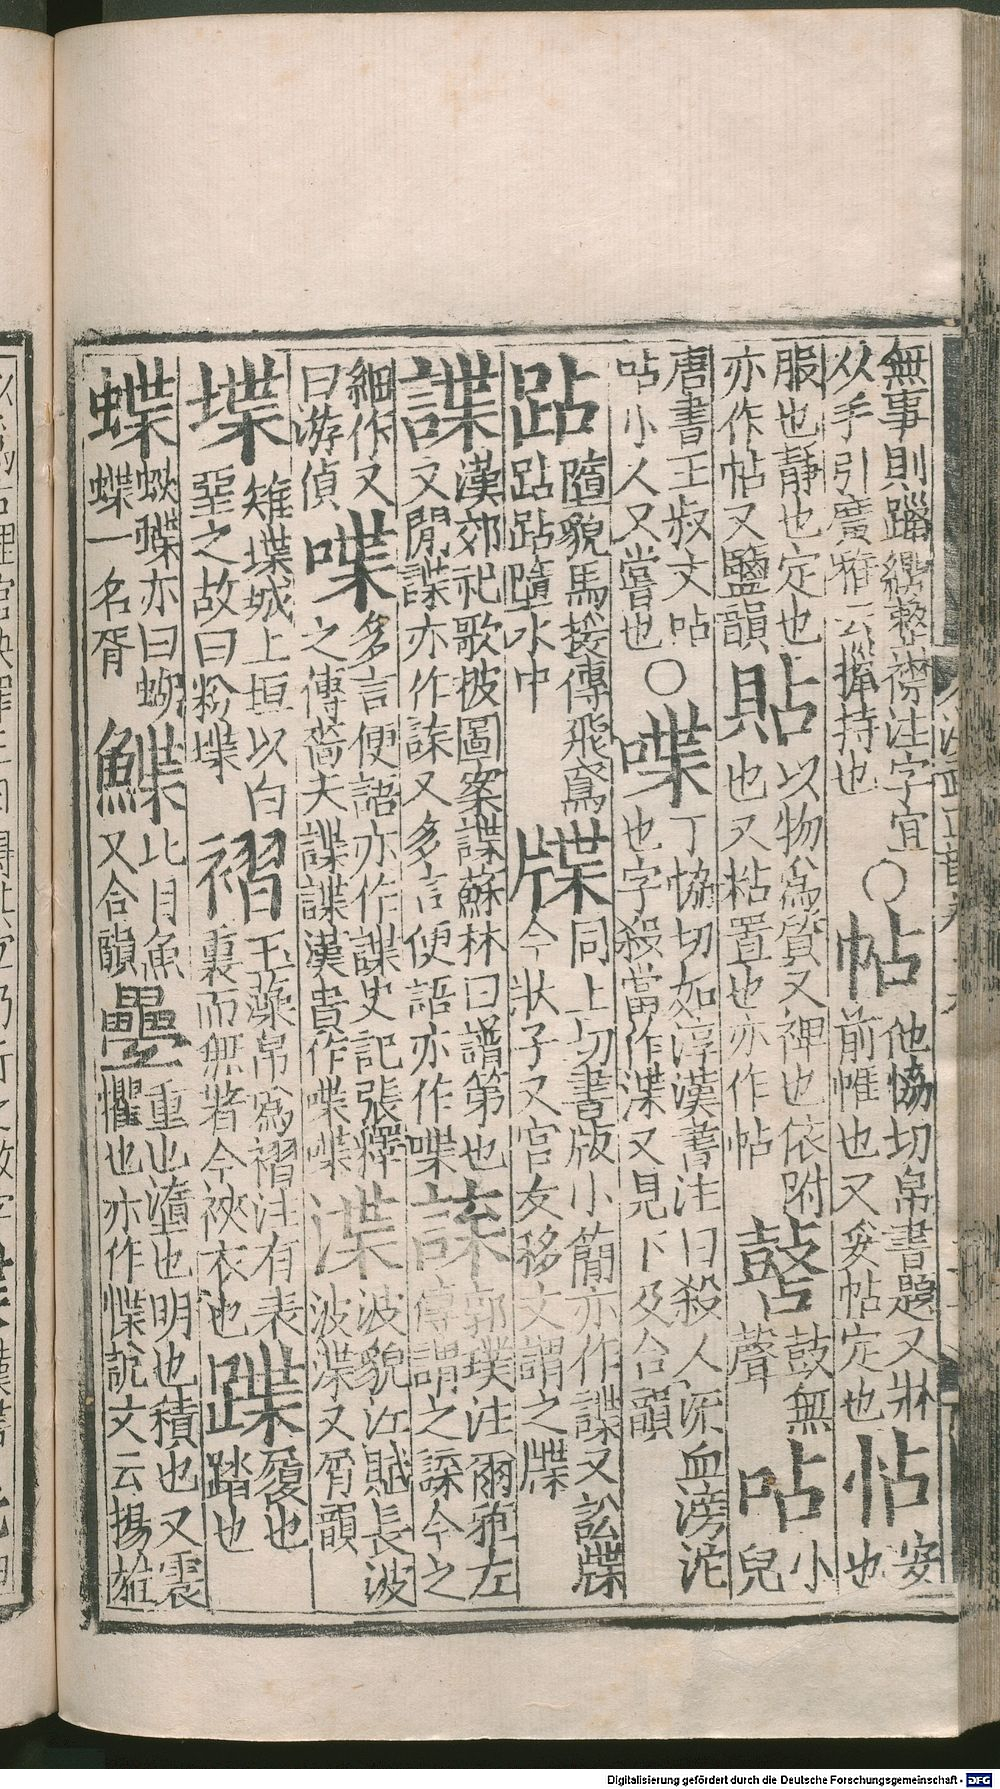 無事則躡纓整襟注字宜
从手引廣雅云擸持也
○帖
他協切帛書題又牀
前帷也又妥帖定也
怗
安也
服也靜也定也
亦作帖又鹽韻
貼
以物為質又裨也依附
也又粘置也亦作帖
㗳
鼓無聲
呫
小兒
唐書王叔文呫
呫小人又嘗也
○喋
丁協切如淳漢書注曰殺人流血滂沱
也字殺當作渫又見下及合韻
跕
墮貌馬援傳飛鳶
跕跕墮水中
牒
同上切書版小簡亦作諜又訟牒
今狀子又官友移文謂之牒
諜
漢郊祀歌披圖案諜蘇林曰譜第也
又閒諜亦作諜又多言便語亦作喋
郭璞注爾雅左
傳謂之諜今之
細作又
曰游偵
喋
多言便語亦作諜史記張釋
之傳嗇夫諜諜漢書作喋喋
渫
波貌江賦長波
波渫又屑韻
堞
雉堞城上垣以白
堊之故曰粉堞
褶
玉藻帛為褶注有表
裏而無著今裌衣也
蹀
履也
蹈也
蝶
蛺蝶亦曰蝴
蝶一名胥
鰈
比目魚
又合韻
疊
重也墮也明也積也又震
懼也亦作惵說文云揚雄
Digitalisierung gefördert durch die Deutsche Forschungsgemeinschaft - DFG